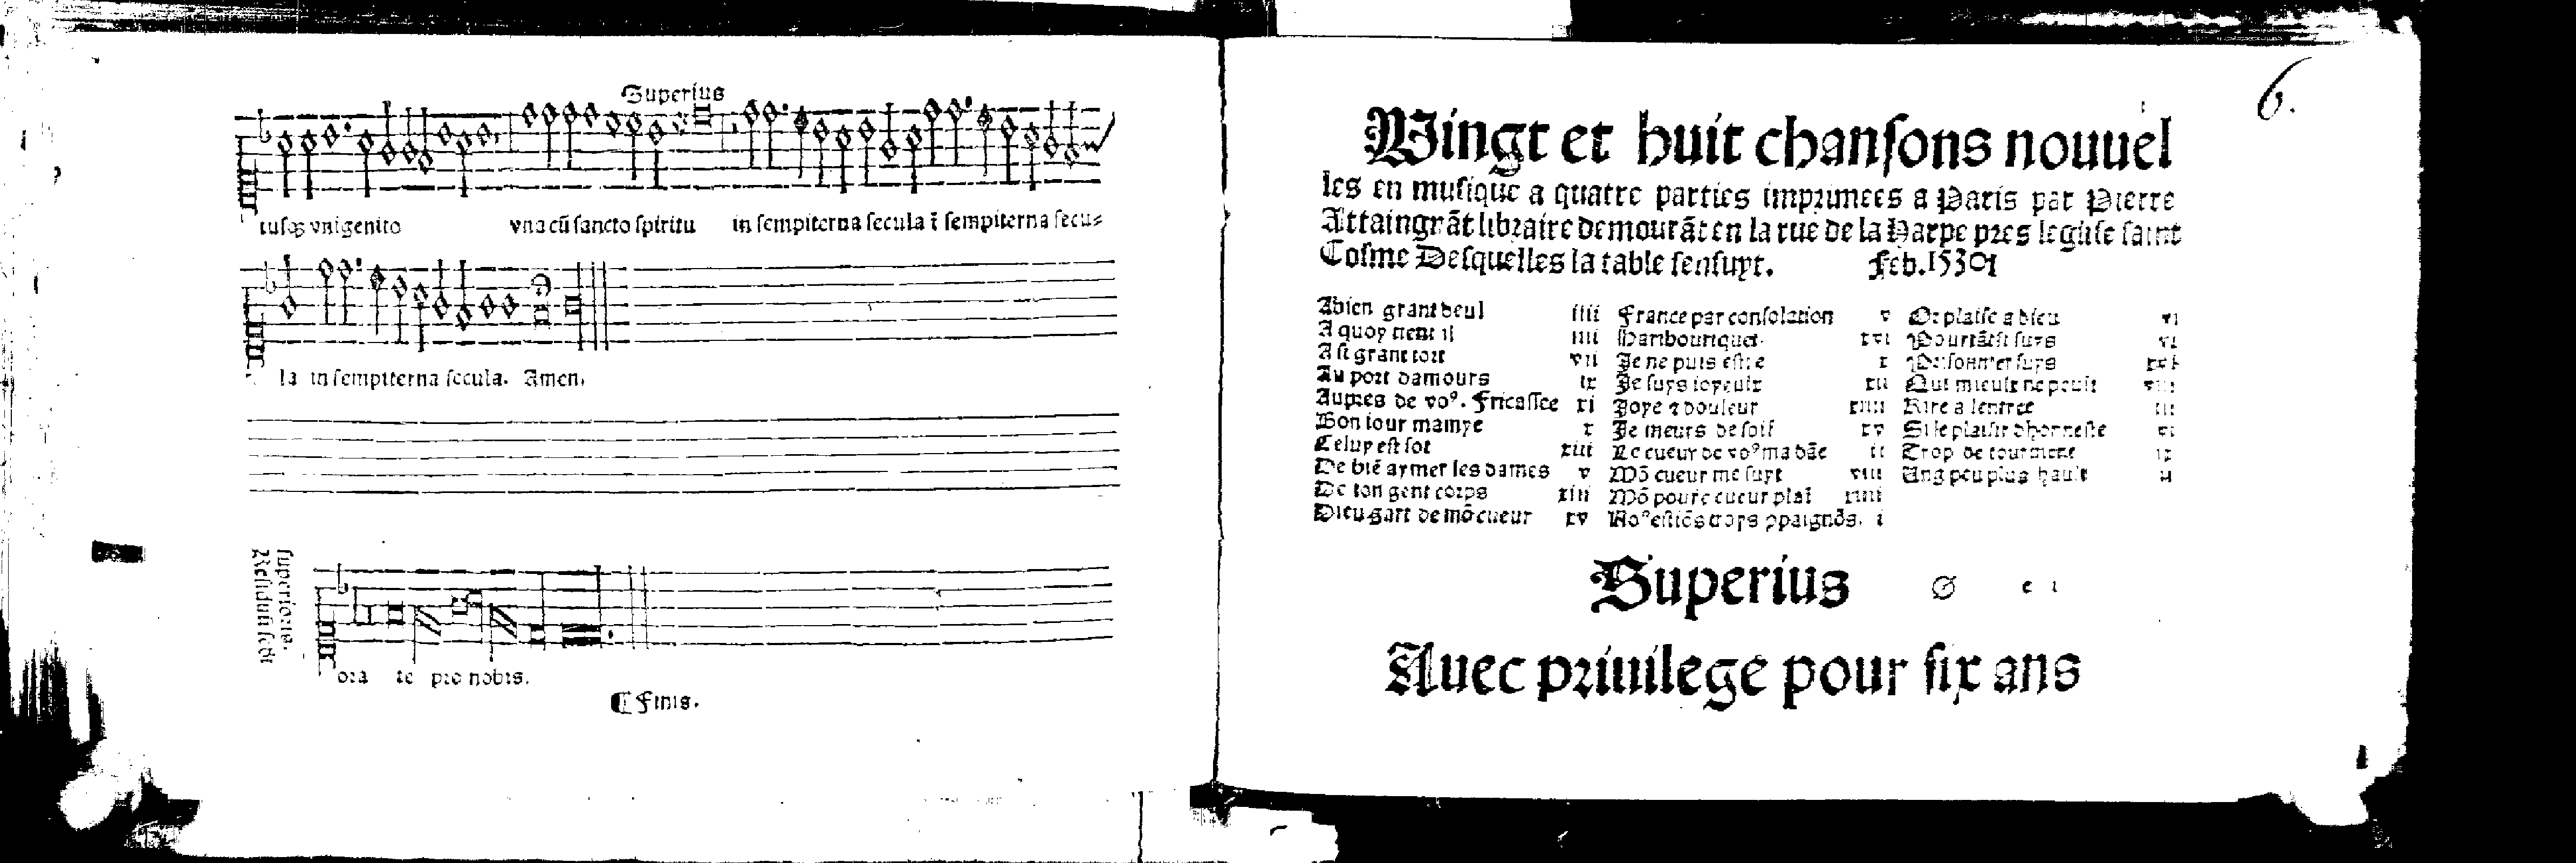 Superius
tusq̃ vnigenito vna cū sancto spiritu in sempiterna secula ī sempiterna secu=
la in sempiterna secula. Amen.
Residuū sedē
superioris.
ora te pro nobis.
¶ Finis.
6.
Vingt et huit chansons nouuel
les en musique a quatre parties imprimees a Paris par Pierre
Attaingnāt libraire demourāt en la rue de la Harpe pres leglise saint
Cosme Desquelles la table sensuyt. Feb. 1530
A bien grant deul iiii
A quoy tient il iiii
A si grant tort vii
Au port damours ix
Aupres de voꝰ. Fricassee xi
Bon iour mamye x
Celuy est sot xiii
De biē aymer les dames v
De ton gent corps xiii
Dieu gart de mō cueur xv
France par consolation v
Hambouriquet. xvi
Je ne puis estre x
Je suys ioyeulx xii
Joye & douleur xiiii
Je meurs de soif xv
Le cueur de voꝰ ma dāe ii
Mō cueur me suyt viii
Mō poure cueur plaī xiiii
Noꝰ estiōs troys ꝯpaignōs. i
Or plaise a dieu vi
Pourtāt si suys vi
Par sonner suys xvi
Qui mieulx ne peult viii
Rire a lentree iii
Si le plaisir dhonneste vi
Trop de tourment ix
Ung peu plus hault ii
Superius
Auec priuilege pour six ans